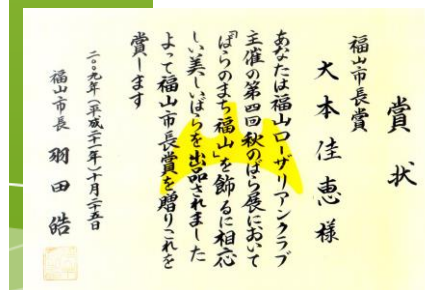 賞状
福山市長賞
大本佳恵様
あなたは福山ローザリアンクラブ
主催の第四回秋のばら展において
「ばらのまち福山」を飾るに相応
しい美しいばらを出品されました
よって福山市長賞を贈りこれを
賞します
二〇〇九年(平成二十一年)十月二十五日
福山市長 羽田皓